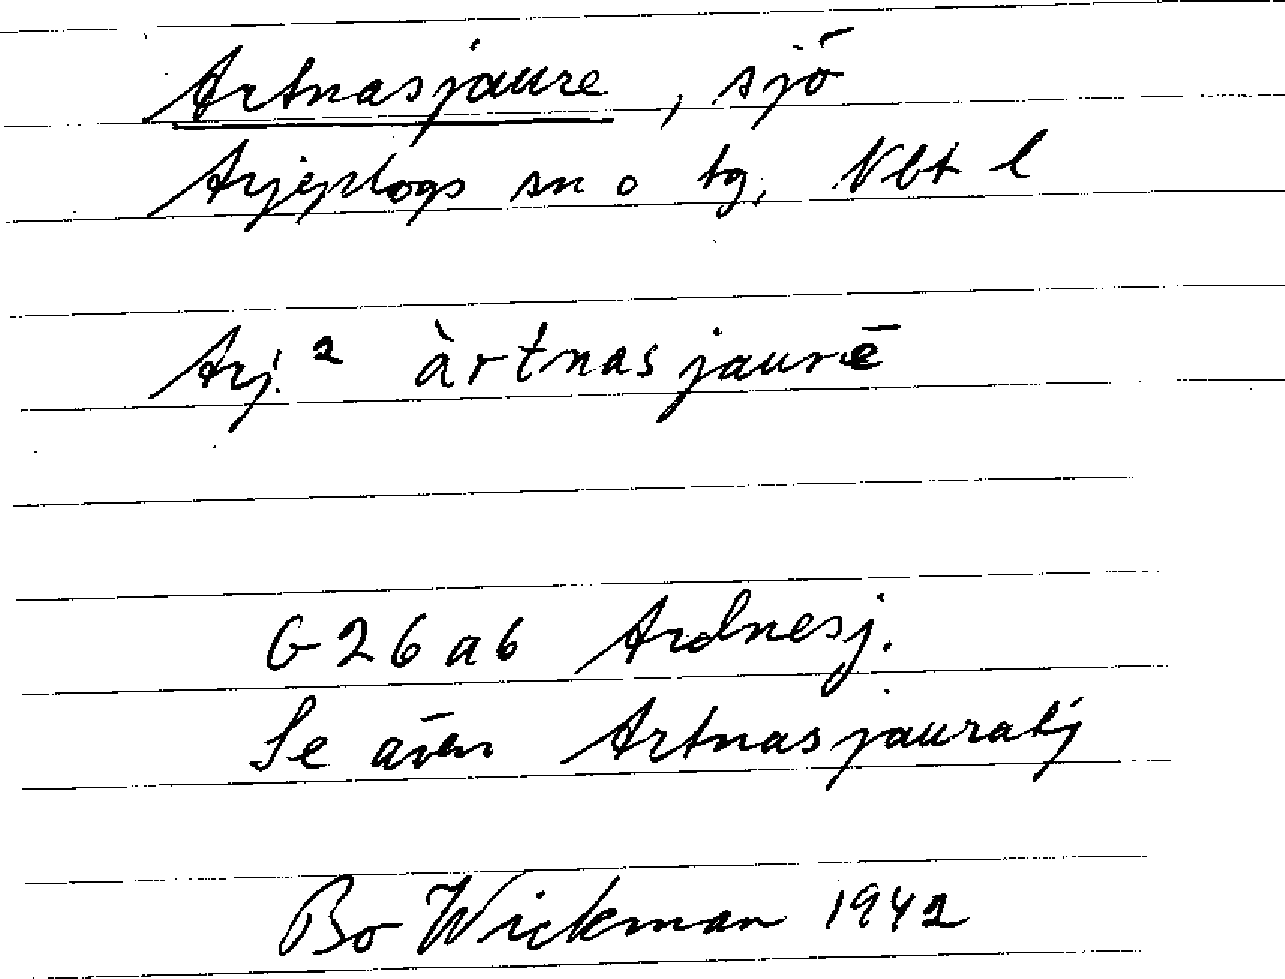 Artnasjaure, sjö
Arjeplogs sn o tg, Vbt l
Arj.² àrtnasjaurē
G26ab Ardnesj.
Se även Artnasjauratj
Bo Wickman 1942